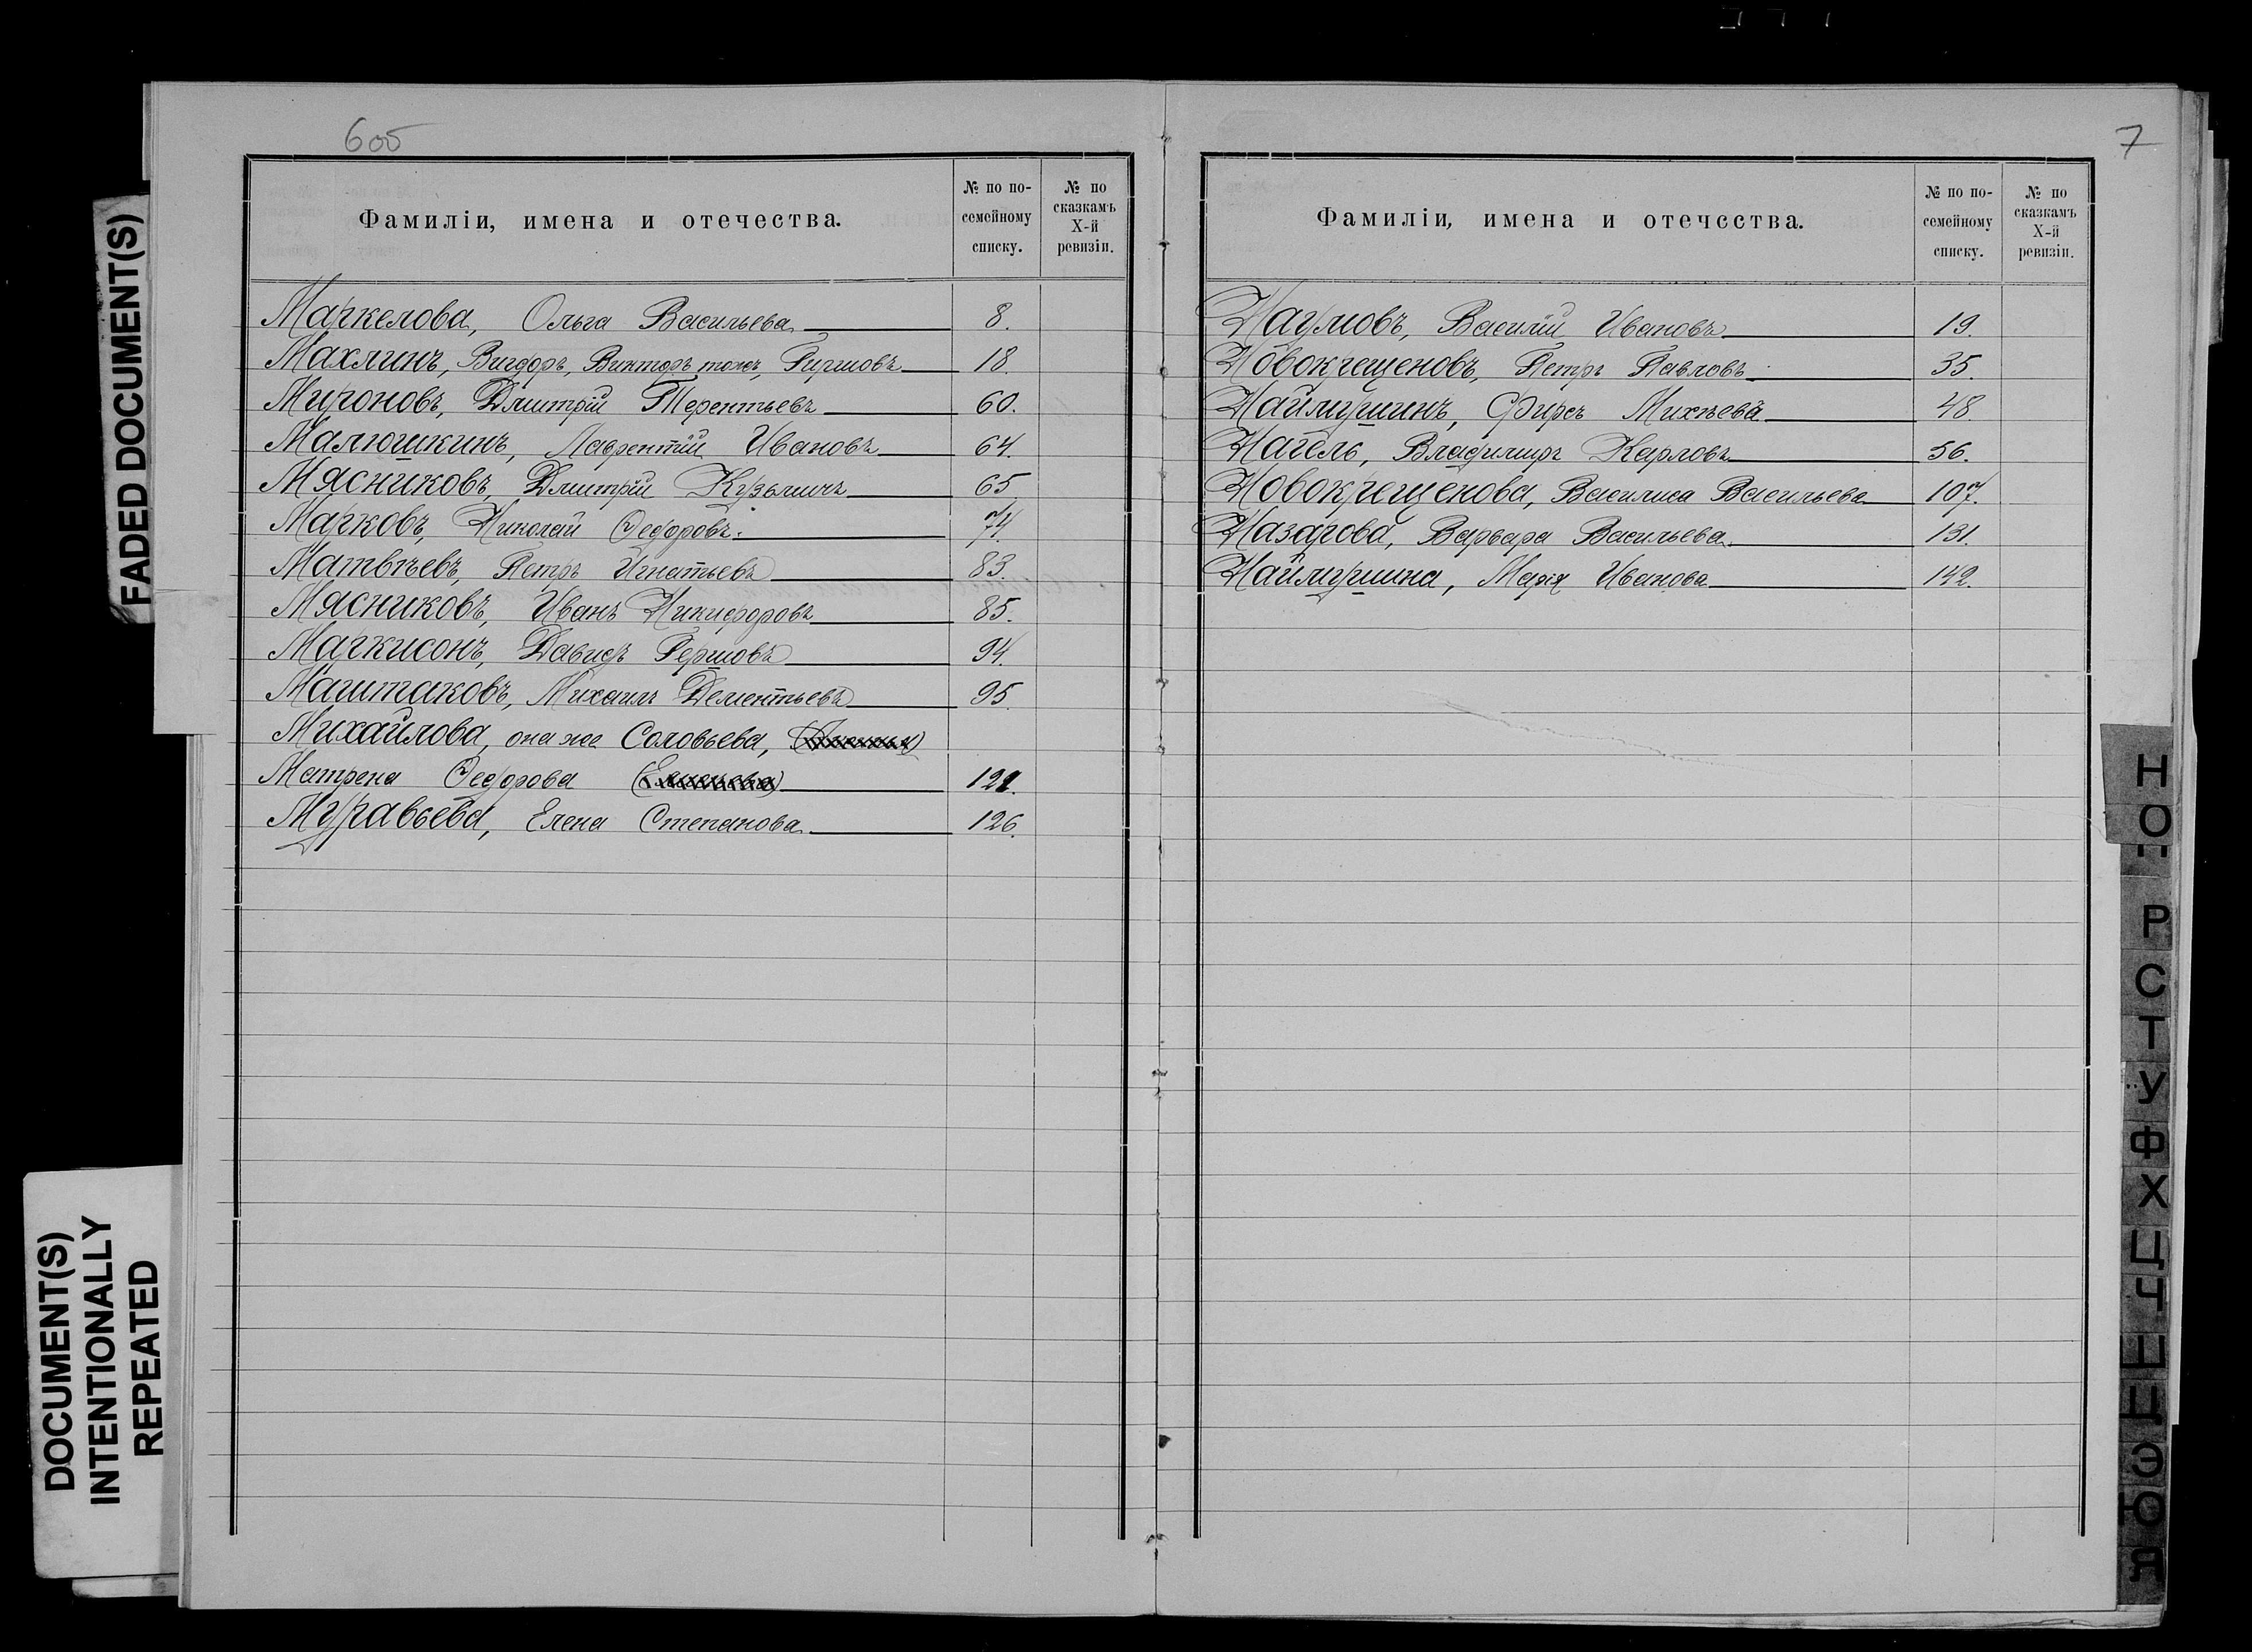 FADED DOCUMENT(S)
DOCUMENT(S)
INTENTIONALLY
REPEATED
Фамиліи, имена и отечества.
№ по по-
семейному
списку.
№ по
сказкамъ
X-й
ревизіи.
Маркелова, Ольга Васильева 8.
Махлинъ, Вигдоръ, Викторъ тожъ, Гиршовъ 18.
Мироновъ, Дмитрій Терентьевъ 60.
Малюшкинъ, Лаврентій Ивановъ 64.
Мясниковъ, Дмитрій Кузьминъ 65
Марковъ, Николай Ѳедоровъ. 74.
Матвѣевъ, Петръ Игнатьевъ 83.
Мясниковъ, Иванъ Никифоровъ 85.
Маркисонъ, Давидъ Гершовъ 94.
Маштаковъ, Михаилъ Дементьевъ 95.
Михайлова, она же Соловьева,
Матрена Ѳедорова 121.
Муравьева, Елена Степанова 126.
7
Фамиліи, имена и отечества.
№ по по-
семейному
списку.
№ по
сказкамъ
X-й
ревизіи.
Наумовъ, Василій Ивановъ 19.
Новокрещеновъ, Петръ Павловъ 35.
Наймушинъ, Фирсъ Михѣевъ 48.
Нагель, Владимиръ Карловъ 56.
Новокрещенова, Василиса Васильева 107.
Назарова, Варвара Васильева 131.
Наймушина, Марія Иванова 142.
Н
О
П
Р
С
Т
У
Ф
Х
Ц
Ч
Ш
Щ
Э
Ю
Я